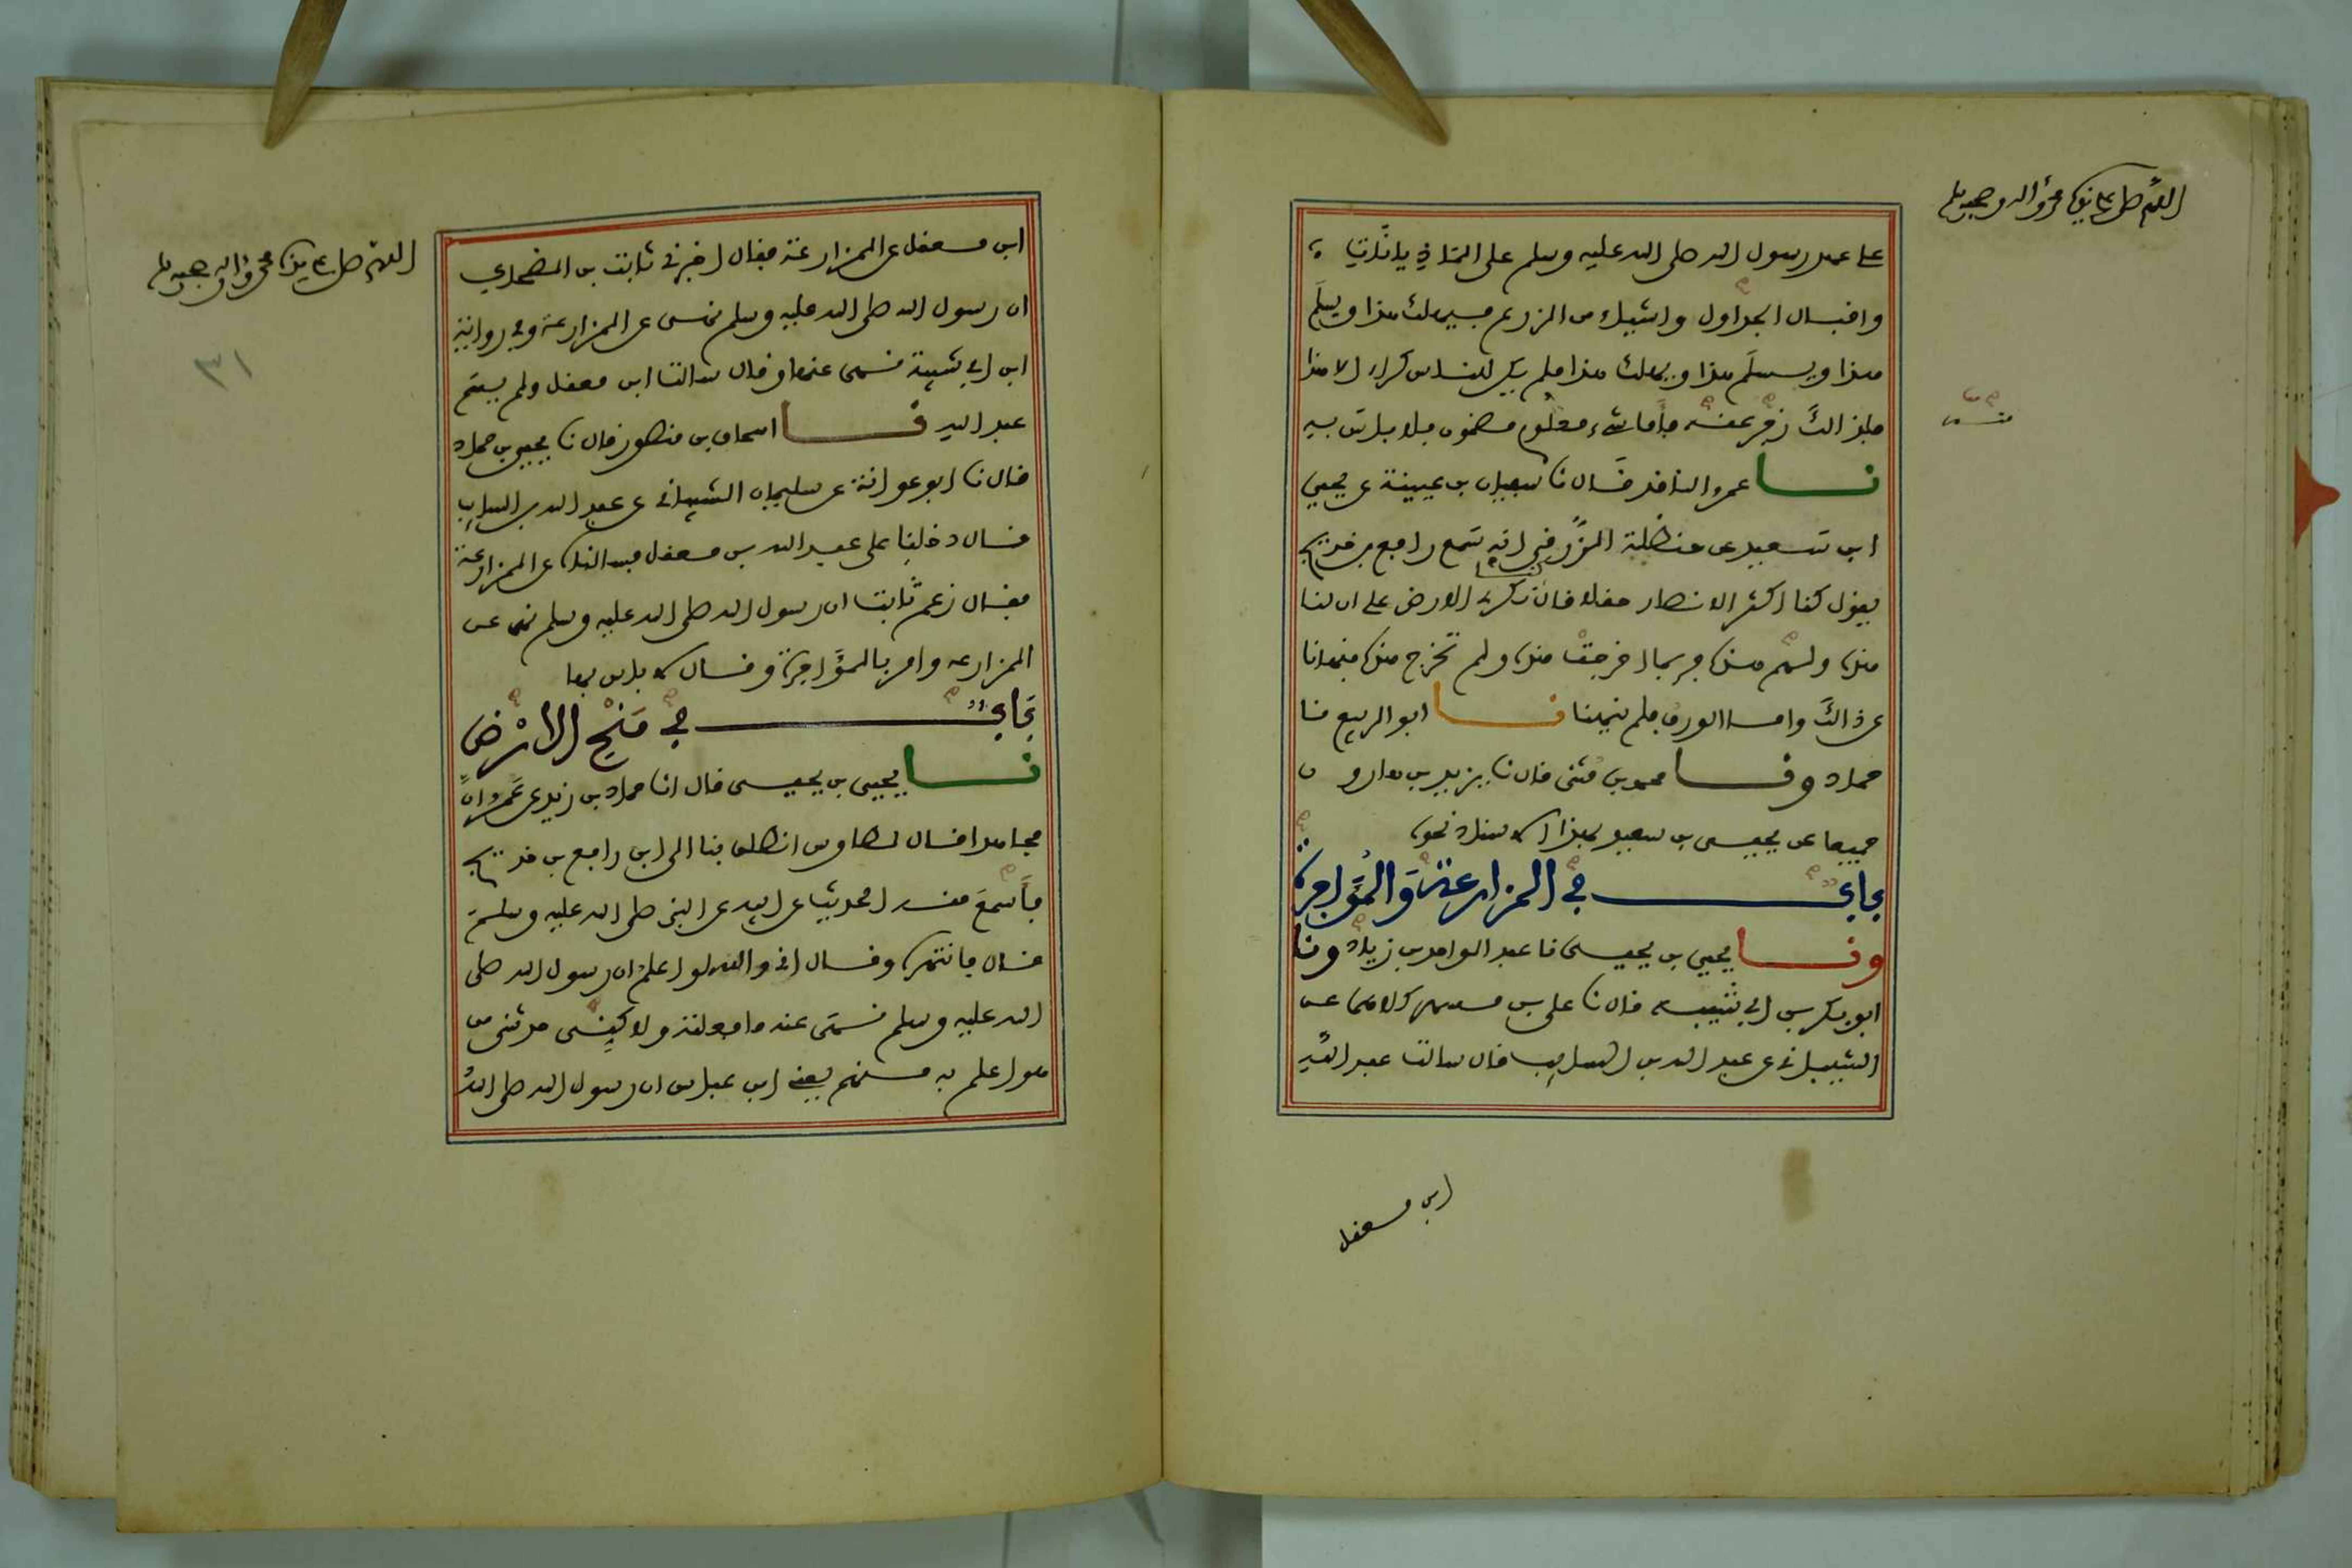 اللهم صل على سيدنا محمد وآله وصحبه وسلم
على عهد رسول الله صلى الله عليه وسلم على الماذيانات
واقبال الجداول واشياء من الزرع فيهلك هذا ويسلم
هذا ويسلم هذا ويهلك هذا فلم يكن للناس كراء الا هذا
فلذالك زجر عنه فأما شيء معلوم مضمون فلا بأس به
نا عمرو الناقد قال نا سفيان بن عيينة عن يحيى
ابن سعيد عن حنظلة الزرقي انه سمع رافع بن خديج
يقول كنا اكثر الانصار حقلا قال كنا نكري الارض على ان لنا
هذه ولهم هذه فربما اخرجت هذه ولم تخرج هذه فنهانا
عن ذالك واما الورق فلم ينهنا نا ابو الربيع نا
حماد ونا محمد بن مثنى قال نا يزيد بن هارون
جميعا عن يحيى بن سعيد بهذا الاسناد نحوه
باب في المزارعة والمؤاجرة
ونا يحيى بن يحيى نا عبد الواحد بن زياد ونا
ابو بكر بن ابي شيبة قال نا علي بن مسهر كلاهما عن
الشيباني عن عبد الله بن السايب قال سالت عبد الله
ابن معقل
اللهم صل على سيدنا محمد وآله وصحبه وسلم
٣١
ابن معقل عن المزارعة فقال اخبرني ثابت بن الضحاك
ان رسول الله صلى الله عليه وسلم نهى عن المزارعة وفي رواية
ابن ابي شيبة نهى عنها وقال سالت ابن معقل ولم يسم
عبد الله نا اسحاق بن منصور قال نا يحيى بن حماد
قال نا ابو عوانة عن سليمان الشيباني عن عبد الله بن السايب
قال دخلنا على عبد الله بن معقل فسالناه عن المزارعة
فقال زعم ثابت ان رسول الله صلى الله عليه وسلم نهى عن
المزارعة وامر بالمؤاجرة وقال لا باس بها
باب في منح الارض
نا يحيى بن يحيى قال انا حماد بن زيد عن عمرو ان
مجاهدا قال لطاوس انطلق بنا الى ابن رافع بن خديج
فأسمع منه الحديث عن ابيه عن النبي صلى الله عليه وسلم
قال فانتهره وقال اني والله لو اعلم ان رسول الله صلى
الله عليه وسلم نهى عنه ما فعلته ولاكن حدثني من
هو اعلم به منهم يعني ابن عباس ان رسول الله صلى الله